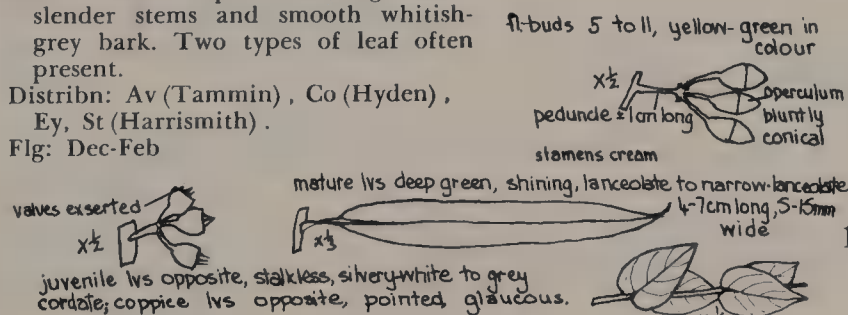 slender stems and smooth whitish-
grey bark. Two types of leaf often
present.
Distribn: Av (Tammin) , Co (Hyden) ,
Ey, St (Harrismith) .
Flg: Dec-Feb
fl-buds 5 to 11, yellow-green in
colour
x½
operculum
bluntly
conical
peduncle ±1cm long
stamens cream
valves exserted
x½
mature lvs deep green, shining, lanceolate to narrow-lanceolate
4-7cm long, 5-15mm
wide
x⅓
juvenile lvs opposite, stalkless, silvery-white to grey
cordate; coppice lvs opposite, pointed, glaucous.